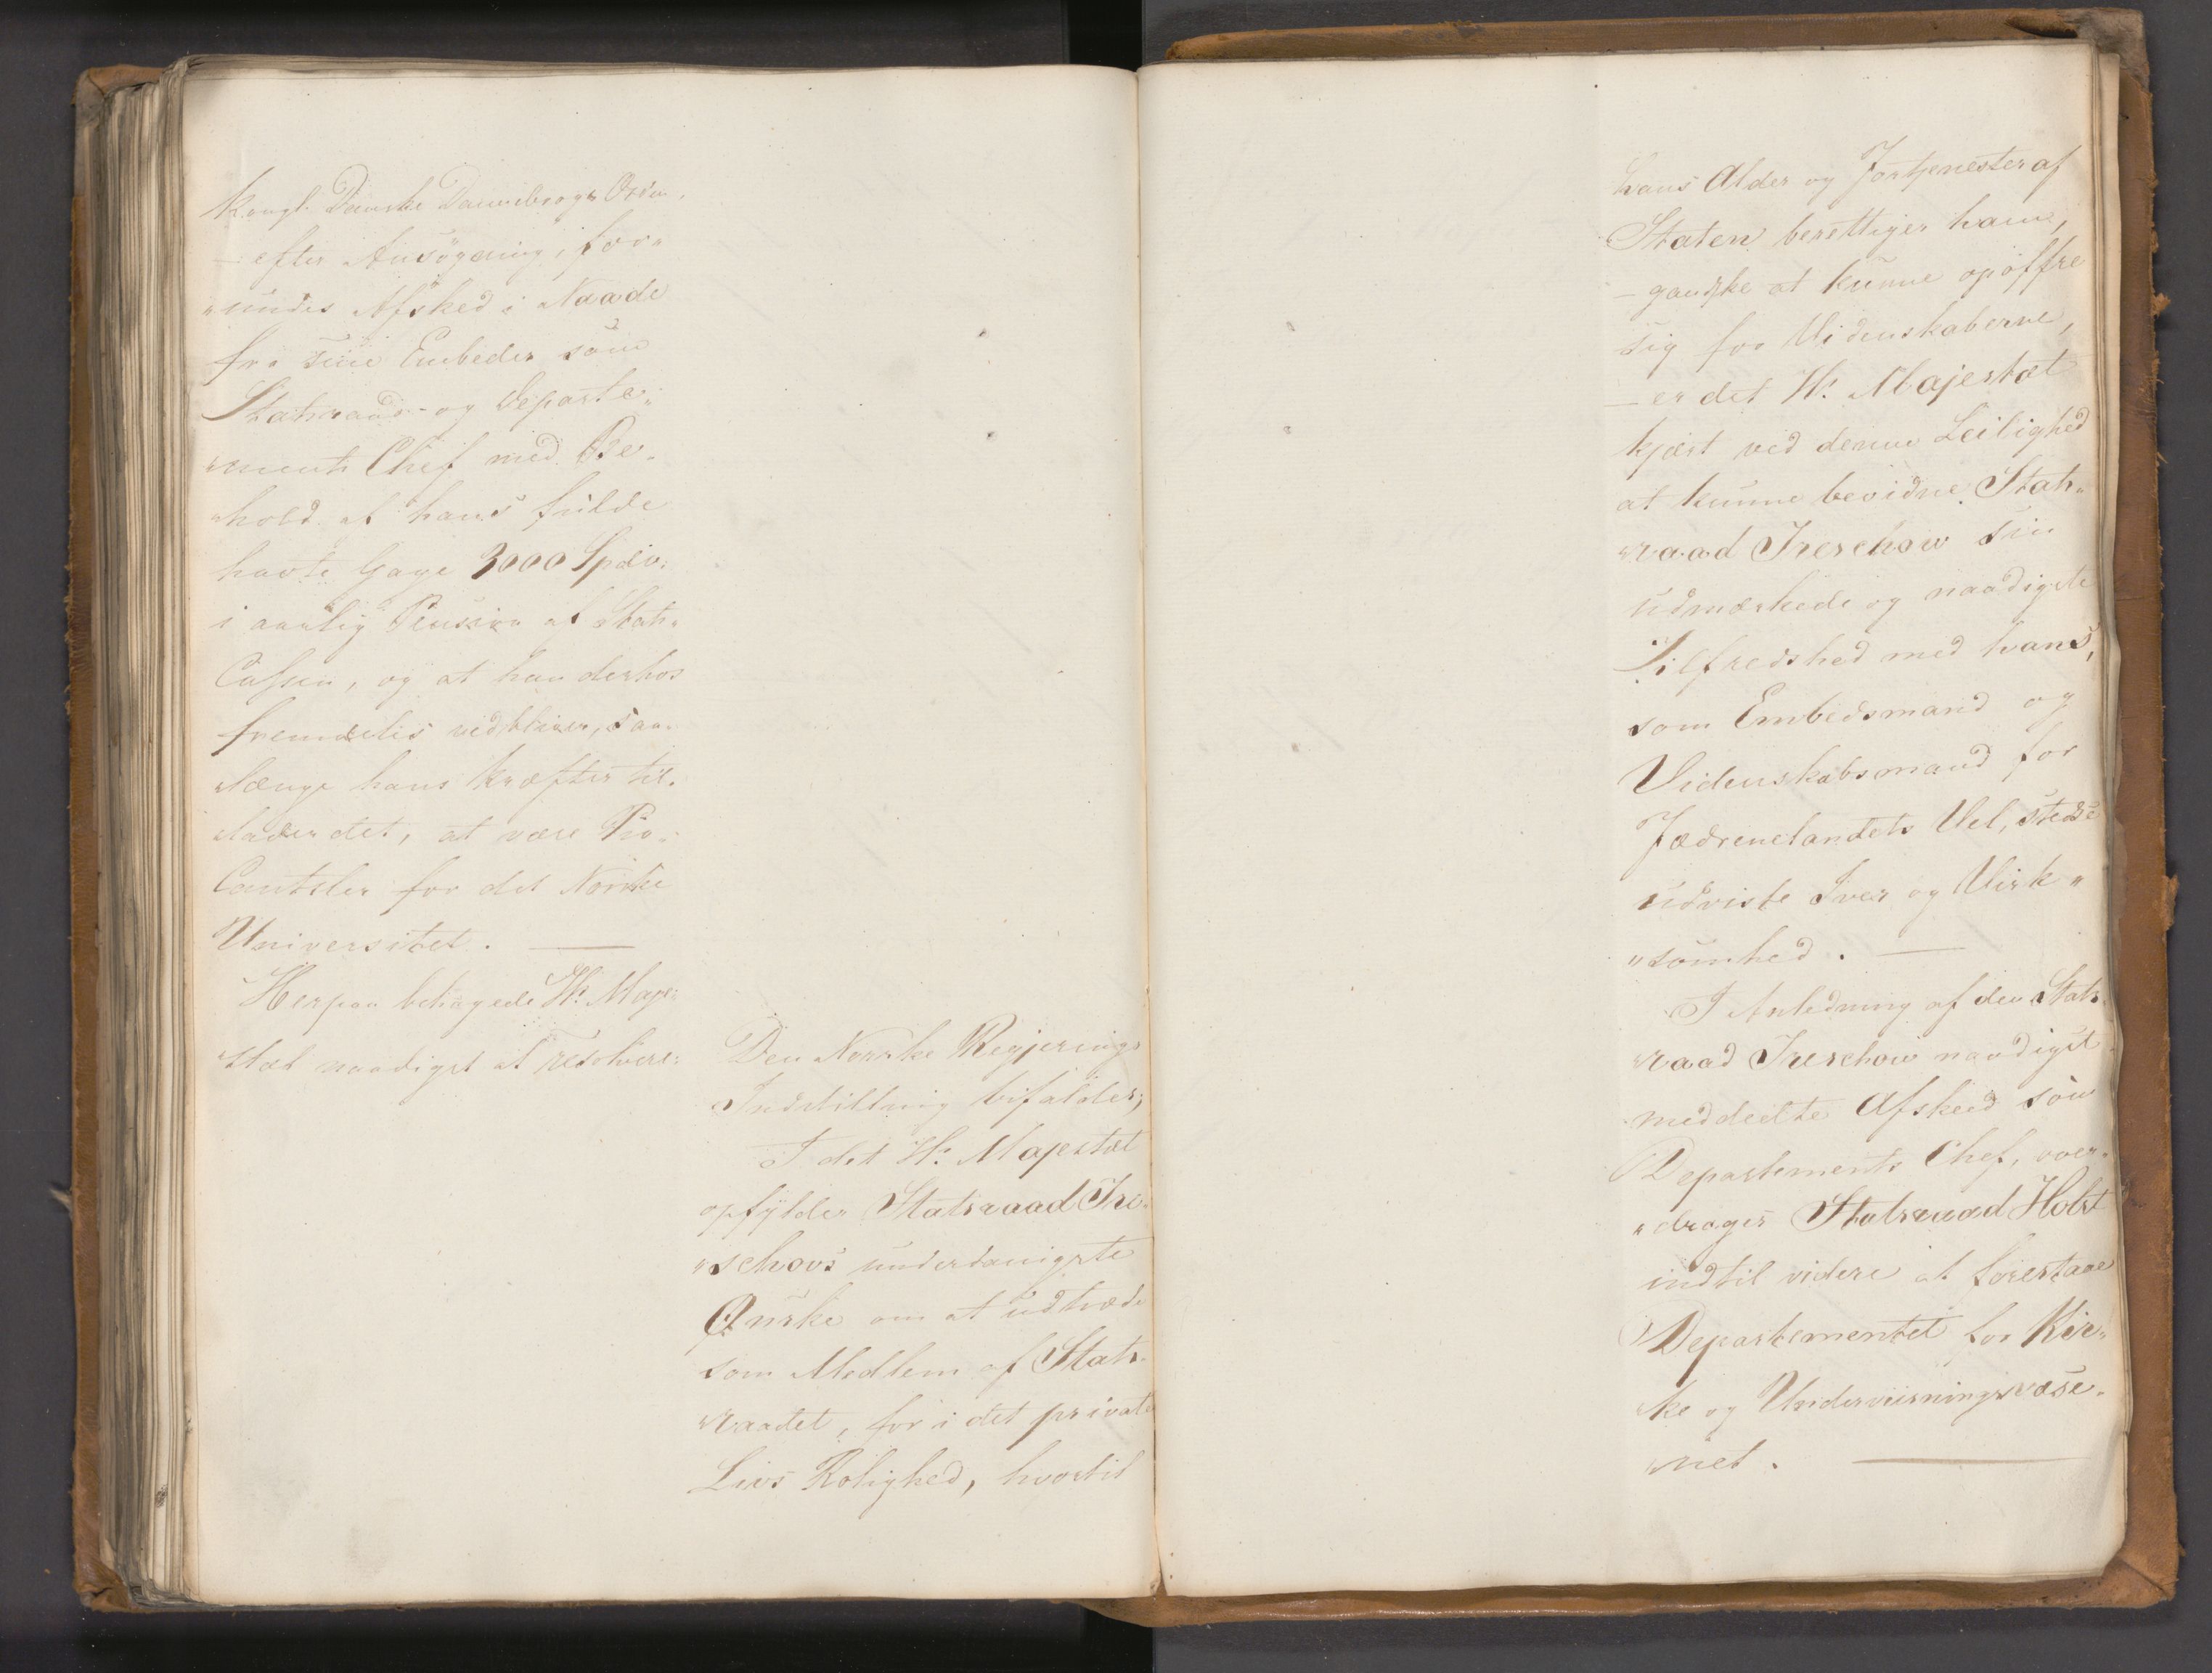 Kongl. Danske Dannebrogs Orden,
— efter Ansögning, for„
„undes Afsked i Naade
fra sine Embeder som
Statsraad- og Departe„
„ments Chef med Be„
„hold af hans fulde
havte Gage 3000 Spdlr.
i aarlig Pension af Stats„
Cassen, og at han derhos
fremdeles vedbliver, saa„
„længe hans Kræfter til„
„lader det, at være Pro„
Cantsler for det Norske
Universitet. —
Herpaa behagede H: Maje„
„stæt naadigst at resolvere:
Den Norske Regjerings
Indstilling bifaldes;
I det H: Majestæt
opfylder Statsraad Tre„
„schows underdanigste
Ønske om at udtræde
som Medlem af Stats„
„raadet, for i det private
Livs Rolighed, hvortil
hans Alder og Fortjenester af
Staten berettiger ham,
— gandske at kunne opoffre
sig for Videnskaberne,
— er det H: Majestæt
kjært ved denne Leilighed
at kunne bevidne Stats„
„raad Treschow sin
udmærkede og naadigste
Tilfredshed med hans,
som Embedsmand og
Videnskabsmand for
Fædrenelandets Vel, stedse
udviste Iver og Virk„
„somhed. —
I Anledning af den Stats„
„raad Treschow naadigst
meddeelte Afskeed som
Departements Chef, over„
„drages Statsraad Holst
indtil videre at forestaae
Departementet for Kir„
„ke og Underviisningsvæse„
„net. —